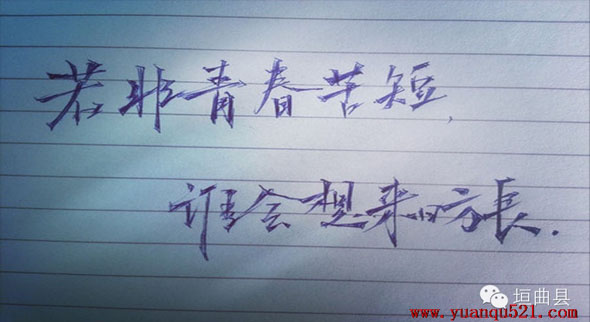 若非青春苦短,
谁会想来日方長.
垣曲县
www.yuanqu521.com